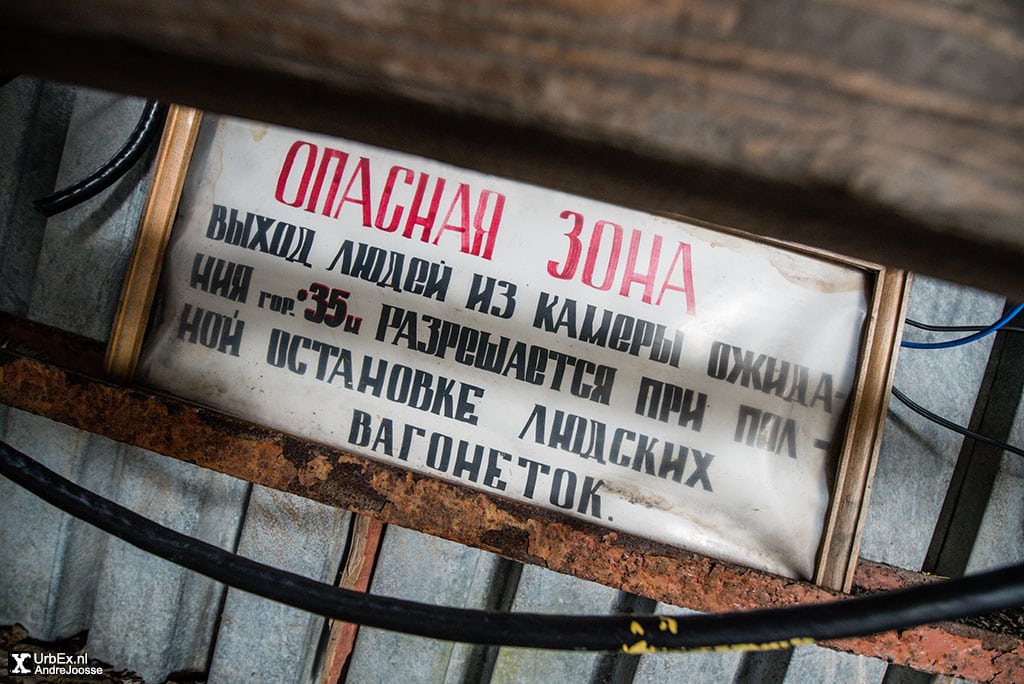 ОПАСНАЯ ЗОНА
ВЫХОД ЛЮДЕЙ ИЗ КАМЕРЫ ОЖИДА-
НИЯ ГОР. +35м РАЗРЕШАЕТСЯ ПРИ ПОЛ-
НОЙ ОСТАНОВКЕ ЛЮДСКИХ
ВАГОНЕТОК.
UrbEx.nl
AndreJoosse